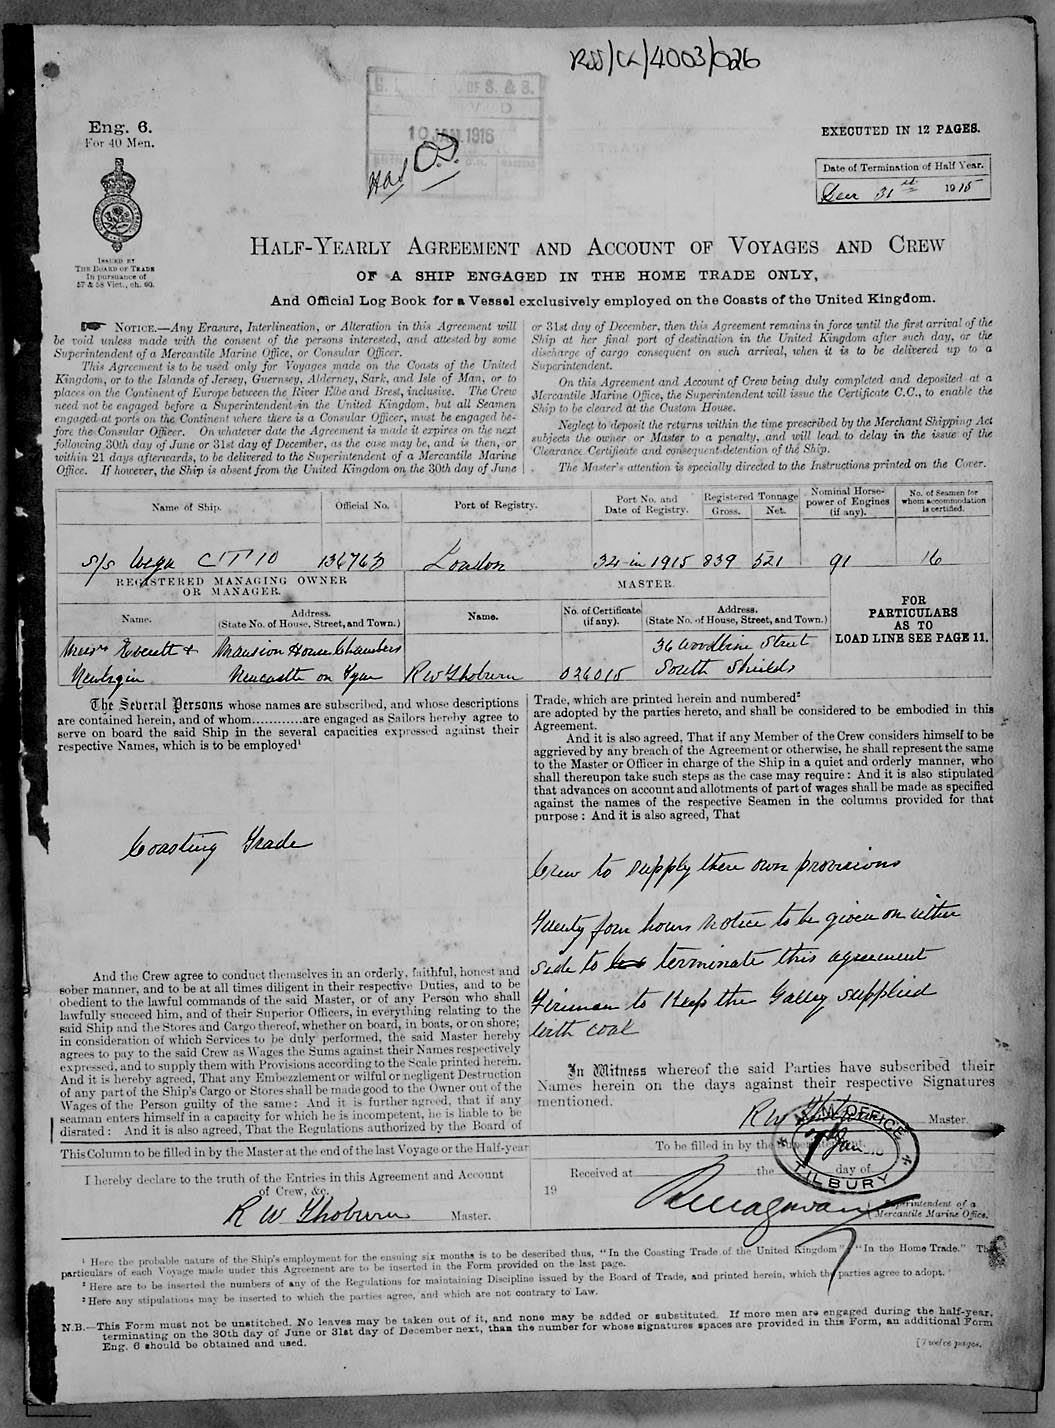 RSS/CL/4003/026
10 JAN 1916
Had O.L.
Eng. 6.
For 40 Men.
EXECUTED IN 12 PAGES.
Date of Termination of Half Year.
Decr 31st 1915
ISSUED BY
THE BOARD OF TRADE
In pursuance of
57 & 58 Vict., ch. 60.
HALF-YEARLY AGREEMENT AND ACCOUNT OF VOYAGES AND CREW
OF A SHIP ENGAGED IN THE HOME TRADE ONLY,
And Official Log Book for a Vessel exclusively employed on the Coasts of the United Kingdom.
NOTICE.—Any Erasure, Interlineation, or Alteration in this Agreement will
be void unless made with the consent of the persons interested, and attested by some
Superintendent of a Mercantile Marine Office, or Consular Officer.
This Agreement is to be used only for Voyages made on the Coasts of the United
Kingdom, or to the Islands of Jersey, Guernsey, Alderney, Sark, and Isle of Man, or to
places on the Continent of Europe between the River Elbe and Brest, inclusive. The Crew
need not be engaged before a Superintendent in the United Kingdom, but all Seamen
engaged at ports on the Continent where there is a Consular Officer, must be engaged be-
fore the Consular Officer. On whatever date the Agreement is made it expires on the next
following 30th day of June or 31st day of December, as the case may be, and is then, or
within 21 days afterwards, to be delivered to the Superintendent of a Mercantile Marine
Office. If however, the Ship is absent from the United Kingdom on the 30th day of June
or 31st day of December, then this Agreement remains in force until the first arrival of the
Ship at her final port of destination in the United Kingdom after such day, or the
discharge of cargo consequent on such arrival, when it is to be delivered up to a
Superintendent.
On this Agreement and Account of Crew being duly completed and deposited at a
Mercantile Marine Office, the Superintendent will issue the Certificate C.C., to enable the
Ship to be cleared at the Custom House.
Neglect to deposit the returns within the time prescribed by the Merchant Shipping Act
subjects the owner or Master to a penalty, and will lead to delay in the issue of the
Clearance Certificate and consequent detention of the Ship.
The Master's attention is specially directed to the Instructions printed on the Cover.
Name of Ship. Official No. Port of Registry. Port No. and Date of Registry. Registered Tonnage Gross. Net. Nominal Horse-power of Engines (if any). No. of Seamen for whom accommodation is certified.
S/S London 34 in 1915 839 521 91 16
REGISTERED MANAGING OWNER OR MANAGER.
MASTER.
Name. Address. (State No. of House, Street, and Town.) Name. No. of Certificate (if any). Address. (State No. of House, Street, and Town.)
FOR
PARTICULARS
AS TO
LOAD LINE SEE PAGE 11.
Messrs Everett & Mansion House Chambers 36 Woodbine Street
Newbigin Newcastle on Tyne R W Thoburn 026015 South Shields
The Several Persons whose names are subscribed, and whose descriptions
are contained herein, and of whom............are engaged as Sailors hereby agree to
serve on board the said Ship in the several capacities expressed against their
respective Names, which is to be employed¹
Coasting Trade
And the Crew agree to conduct themselves in an orderly, faithful, honest and
sober manner, and to be at all times diligent in their respective Duties, and to be
obedient to the lawful commands of the said Master, or of any Person who shall
lawfully succeed him, and of their Superior Officers, in everything relating to the
said Ship and the Stores and Cargo thereof, whether on board, in boats, or on shore;
in consideration of which Services to be duly performed, the said Master hereby
agrees to pay to the said Crew as Wages the Sums against their Names respectively
expressed, and to supply them with Provisions according to the Scale printed herein.
And it is hereby agreed, That any Embezzlement or wilful or negligent Destruction
of any part of the Ship's Cargo or Stores shall be made good to the Owner out of the
Wages of the Person guilty of the same: And it is further agreed, that if any
seaman enters himself in a capacity for which he is incompetent, he is liable to be
disrated: And it is also agreed, That the Regulations authorized by the Board of
Trade, which are printed herein and numbered²
are adopted by the parties hereto, and shall be considered to be embodied in this
Agreement.
And it is also agreed, That if any Member of the Crew considers himself to be
aggrieved by any breach of the Agreement or otherwise, he shall represent the same
to the Master or Officer in charge of the Ship in a quiet and orderly manner, who
shall thereupon take such steps as the case may require: And it is also stipulated
that advances on account and allotments of part of wages shall be made as specified
against the names of the respective Seamen in the columns provided for that
purpose: And it is also agreed, That
Crew to supply there own provisions
Twenty four hours notice to be given on either
side to terminate this agreement
Fireman to Keep the Galley supplied
with coal
In Witness whereof the said Parties have subscribed their
Names herein on the days against their respective Signatures
mentioned.
R W Thoburn Master.
This Column to be filled in by the Master at the end of the last Voyage or the Half-year
I hereby declare to the truth of the Entries in this Agreement and Account
of Crew, &c.
R W Thoburn Master.
To be filled in by the Superintendent.
Received at the day of
19
Superintendent of a
Mercantile Marine Office.
M.M. OFFICE
7th Jan
TILBURY
¹ Here the probable nature of the Ship's employment for the ensuing six months is to be described thus, "In the Coasting Trade of the United Kingdom"; "In the Home Trade." The
particulars of each Voyage made under this Agreement are to be inserted in the Form provided on the last page.
² Here are to be inserted the numbers of any of the Regulations for maintaining Discipline issued by the Board of Trade, and printed herein, which the parties agree to adopt.
³ Here any stipulations may be inserted to which the parties agree, and which are not contrary to Law.
N.B.—This Form must not be unstitched. No leaves may be taken out of it, and none may be added or substituted. If more men are engaged during the half-year,
terminating on the 30th day of June or 31st day of December next, than the number for whose signatures spaces are provided in this Form, an additional Form
Eng. 6 should be obtained and used.
[Twelve pages.